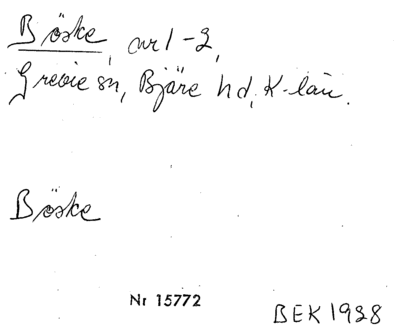 Böske, nr 1-2,
Grevie sn, Bjäre hd, K-län.
Böske
Nr 15772
BEK 1928